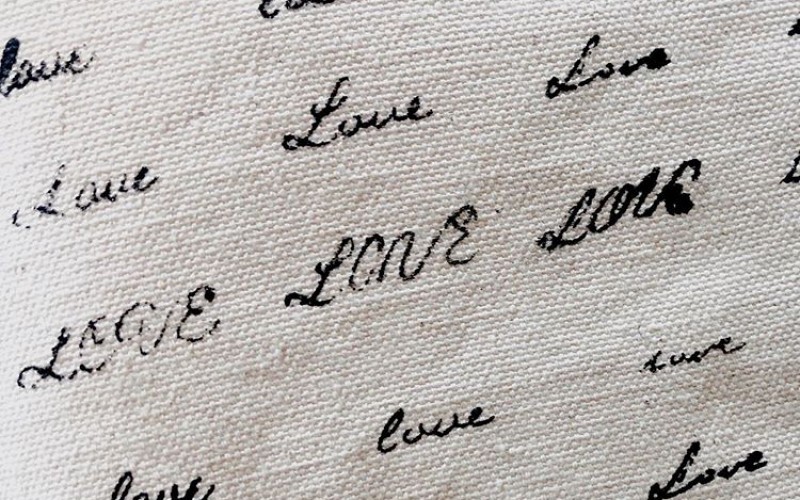 love
Love Love
Love
LOVE LOVE LOVE
love
love
love Love